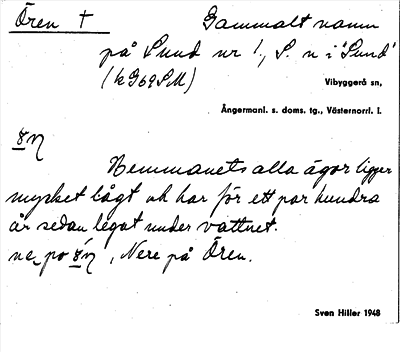 Ören † Gammalt namn
på Sund nr 1., S. n i 'Sund'
(kG69SM)
Vibyggerå sn,
Ångermanl. s. doms. tg., Västernorrl. l.
Hemmanets alla ägor ligger
mycket lågt och har för ett par hundra
år sedan legat under vattnet.
ne po , Nere på Ören.
Sven Hiller 1948